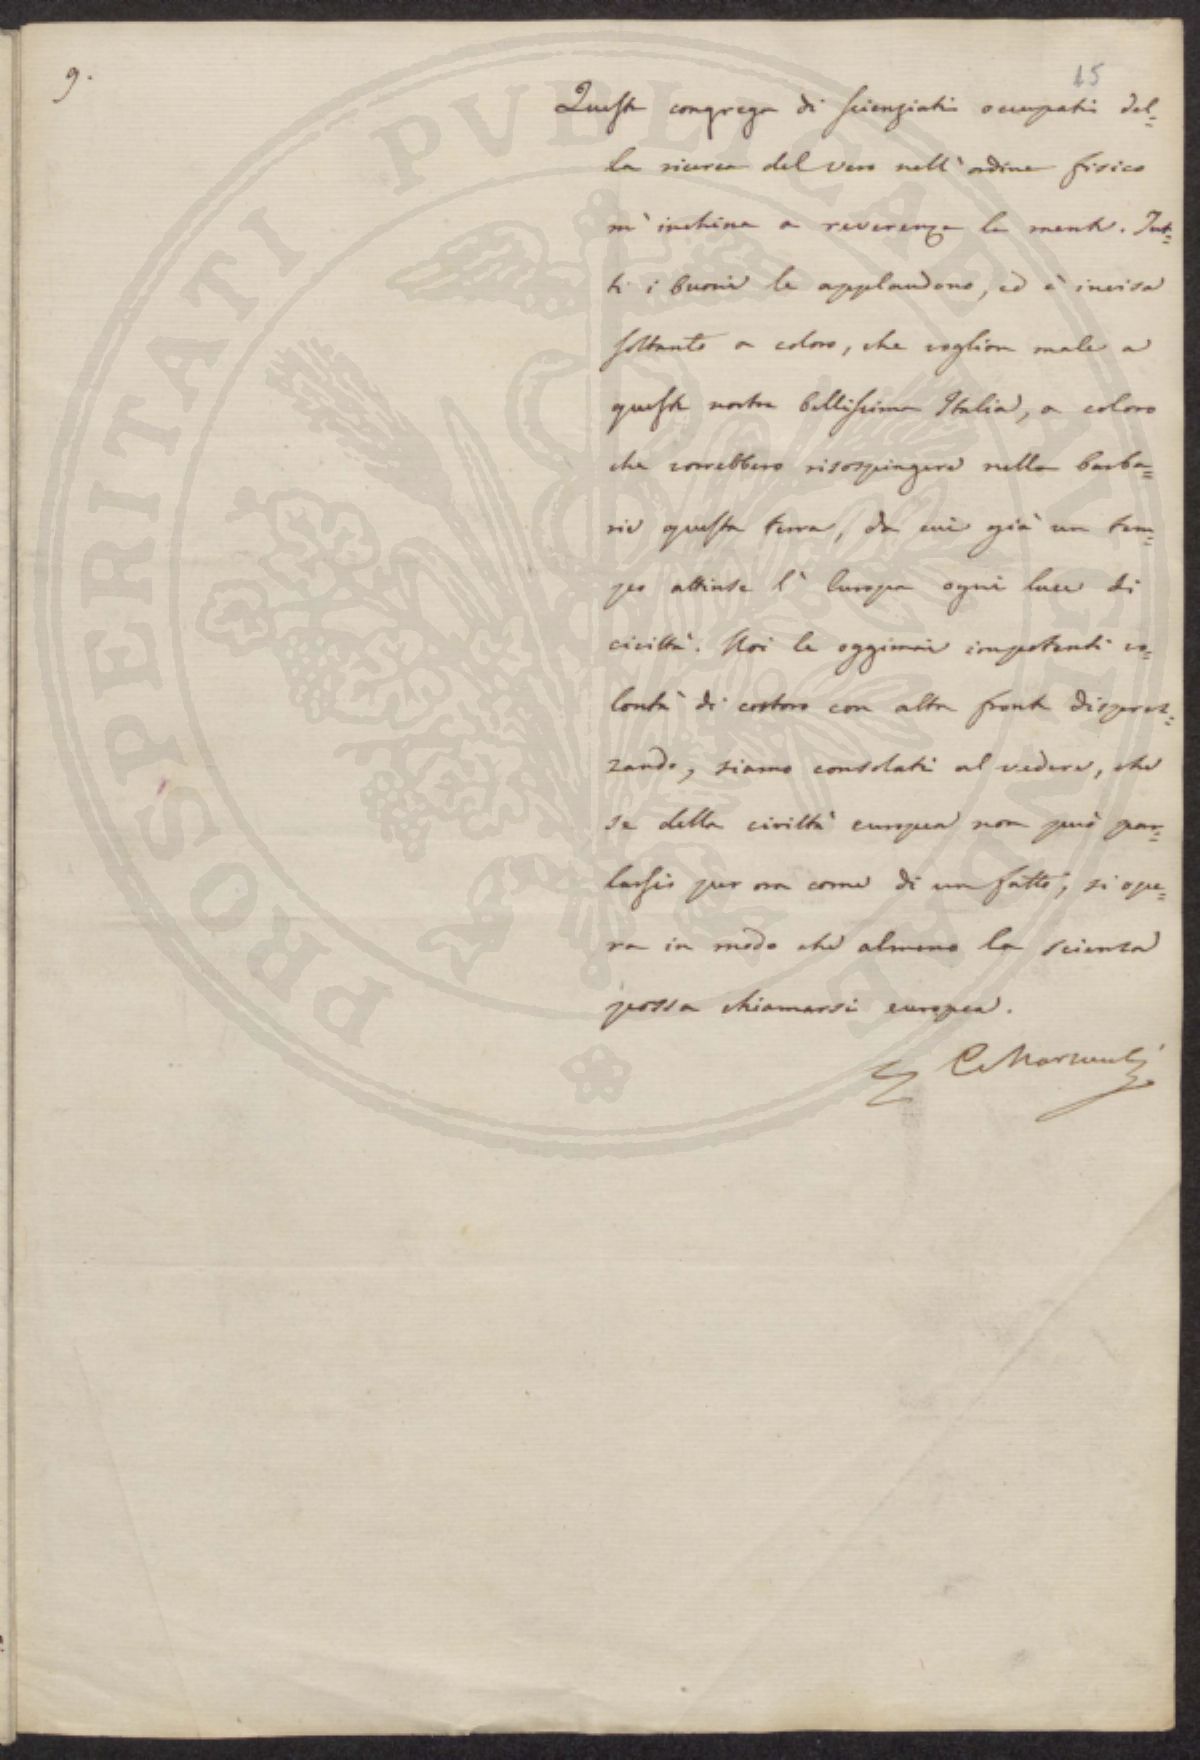 9.
15
Questa congrega di scienziati occupati del=
la ricerca del vero nell'ordine fisico
m'inchina a reverenza la mente. Tut=
ti i buoni le applaudono, ed è invisa
soltanto a coloro, che voglion male a
questa nostra bellissima Italia, a coloro
che vorrebbero risospingere nella barba=
rie questa terra, da cui già un tem=
po attinse l'Europa ogni luce di
civiltà. Noi le oggimai impotenti vo=
lontà di costoro con alta fronte disprez=
zando, siamo consolati al vedere, che
se della civiltà europea non può par=
larsi per ora come di un fatto, si ope=
ra in modo che almeno la scienza
possa chiamarsi europea.
PROSPERITATI PVBLICAE AVGENDAE